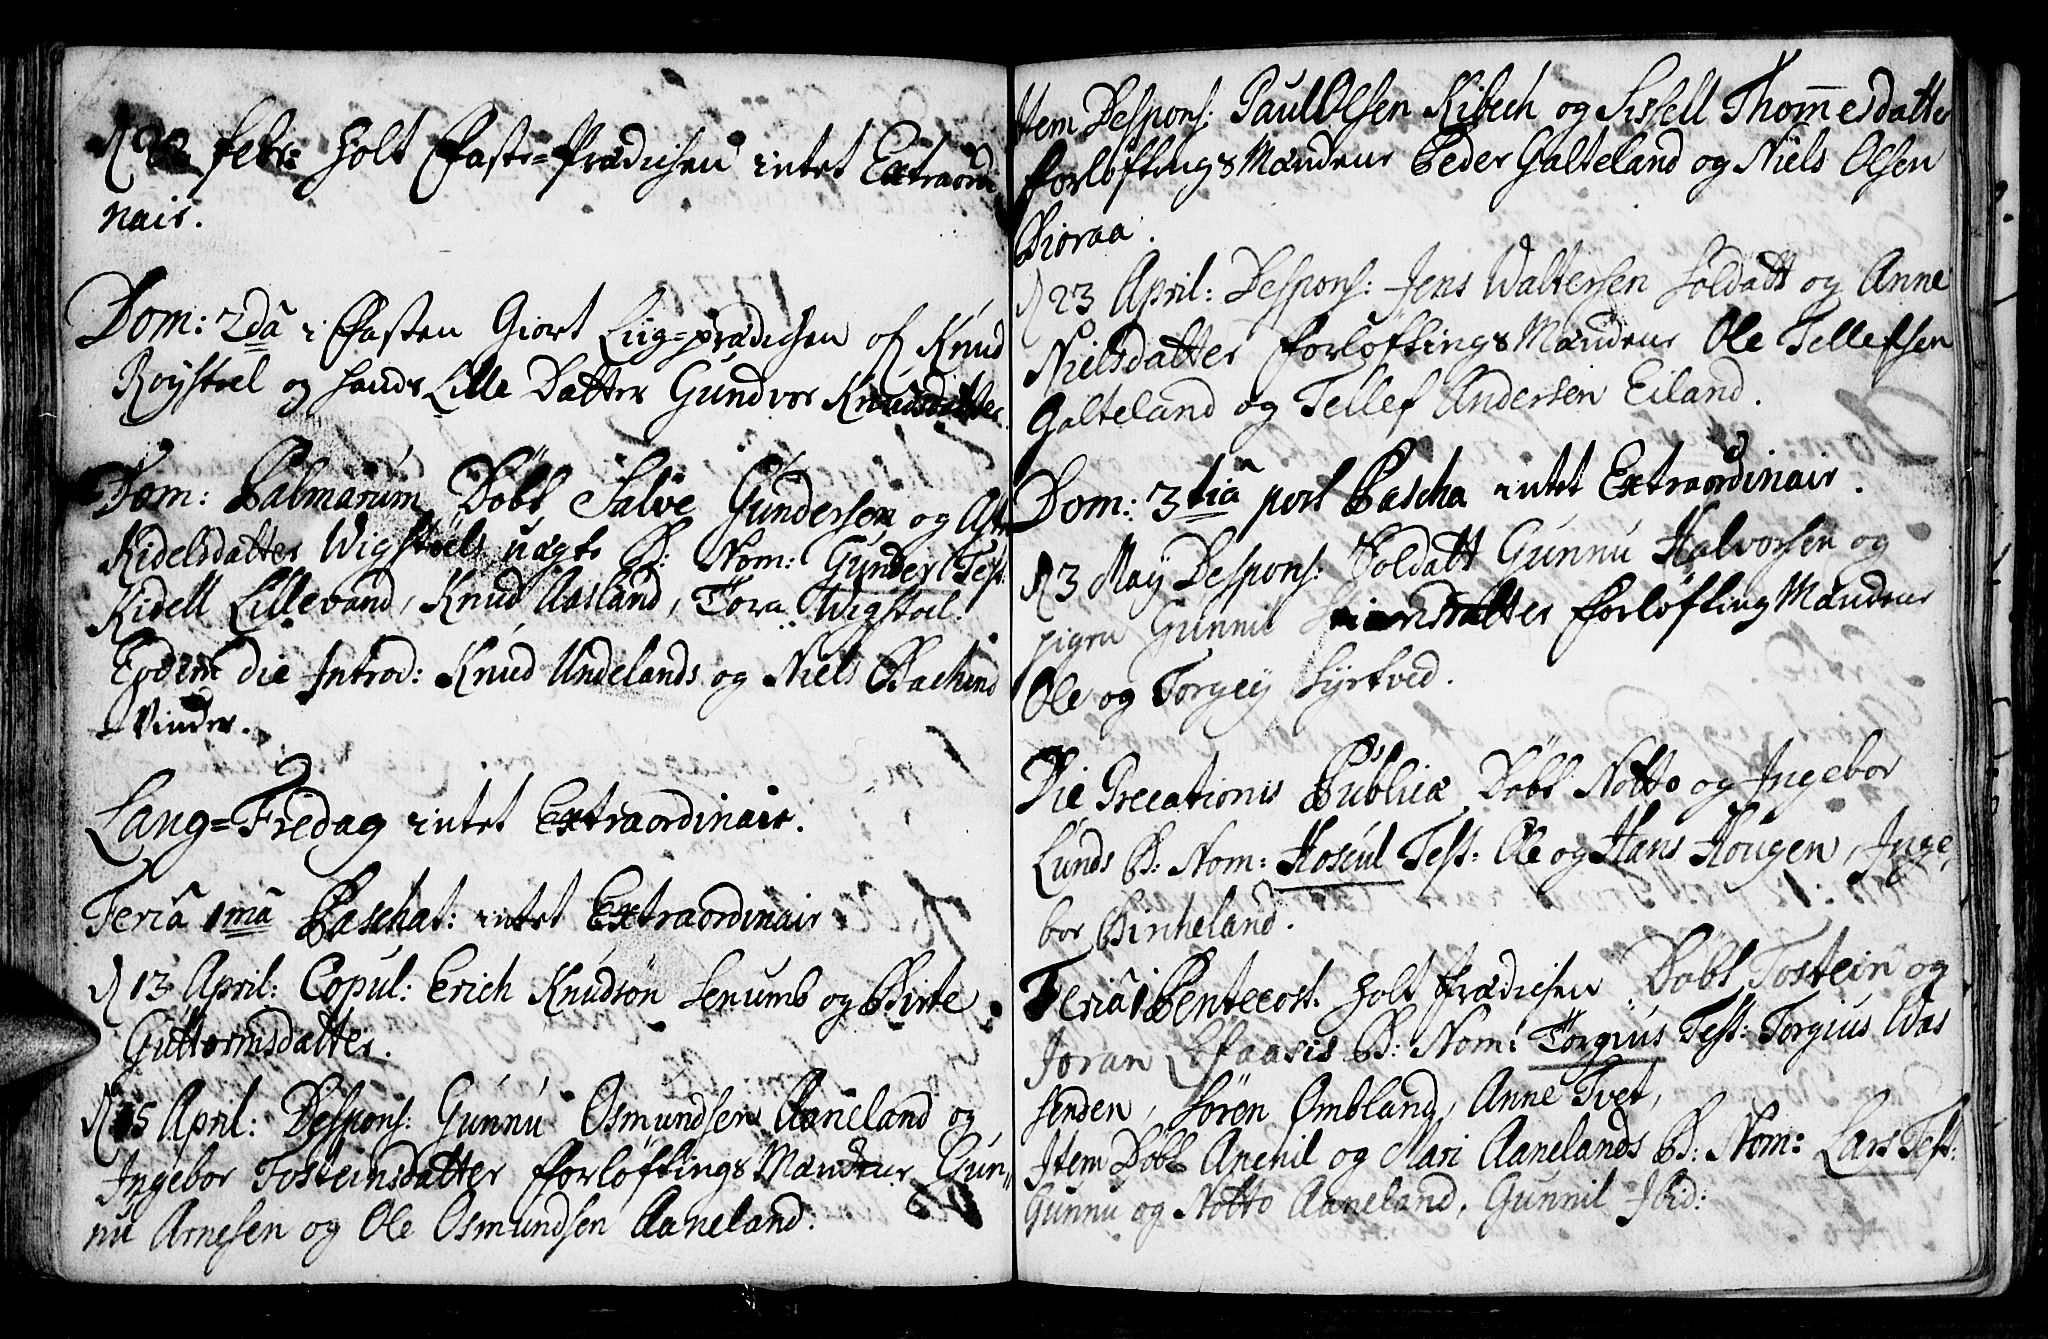 Febr: holt Faste=Prædichen intet Extraordi
nair.
Dom: 2dâ i Fasten Giort Liig=prædichen of Knud
Røystoel og hands Lille Datter Gundvor Knudsdatter.
Dom: Palmarum Døbt Salve Gundersen og
Kidelsdatter Wigstoels uægte B: Nom: Gunder Test:
Kidell Lillevand, Knud Aasland, Tora Wigstoel.
Eodem die Introd: Knud Undelands og Niels Bachens
Qvinder.
Lang=Fredag intet Extraordinair.
Feriâ 1mâ Paschat: intet Extraordinair
d 13 April: Copul: Erich Knudsøn Senumb og Birte
Guttormsdatter.
d 15 April: Despons: Gunnu Osmundsen Aaneland og
Ingebor Tosteinsdatter Forløftings Mændene Gun=
nu Arnesen og Ole Osmundsen Aaneland.
Item Despons: Paul Olsen Kibech og Sissell Thommesdatter
Forløftings Mændene Peder Galteland og Niels Olsen
Bioraa.
d 23 April: Despons: Jens Waltersen Soldatt og Anne
Nielsdatter Forløftings Mændene Ole Tellefsen
Galteland og Tellef Andersen Eiland.
Dom: 3tiâ post Pascha intet Extraordinair.
d 3 May Despons: Soldatt Gunnu Halvorsen og
pigen Gunnil Forløfting Mændene
Ole og Torgey Syrtved.
Die Precationis Publicæ Døbt Notto og Ingebor
Lunds B: Nom: Hoscul Test: Ole og Hans Hougen, Inge,
bor Birkeland.
Feriâ 1 Pentecost: holt Prædichen Døbt Tostein og
Joran Lofaasis B: Nom: Torgius Test: Torgius Was
senden, Søren Ombland, Anne Tvet,
Item Døbt Anenil og Mari Aanelands B: Nom: Lars Test:
Gunnu og Notto Aaneland, Gunnil Ibid: